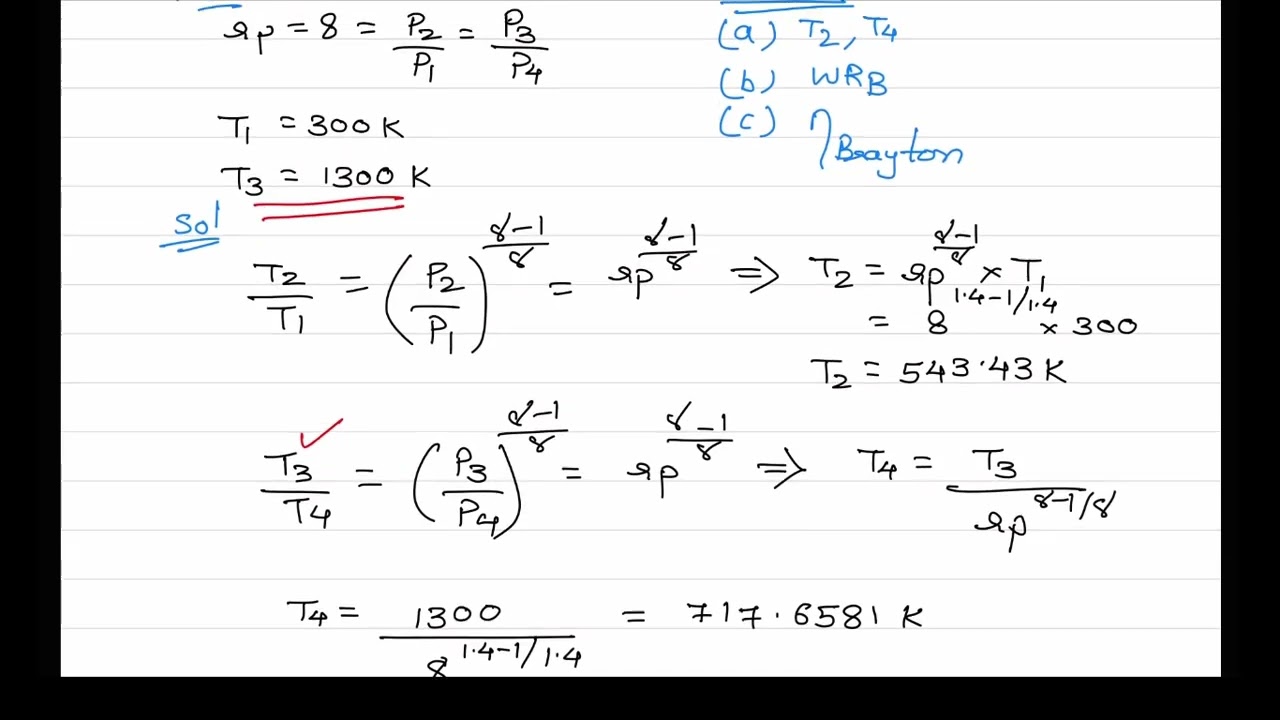 rp = 8 = P2/P1 = P3/P4
(a) T2, T4
(b) WRB
T1 = 300 K
(c) ηBrayton
T3 = 1300 K
Sol
T2/T1 = (P2/P1)^(γ-1/γ) = rp^(γ-1/γ) ⇒ T2 = rp^(γ-1/γ) × T1
= 8^(1.4-1/1.4) × 300
T2 = 543.43 K
T3/T4 = (P3/P4)^(γ-1/γ) = rp^(γ-1/γ) ⇒ T4 = T3/rp^(γ-1/γ)
T4 = 1300/8^(1.4-1/1.4) = 717.6581 K